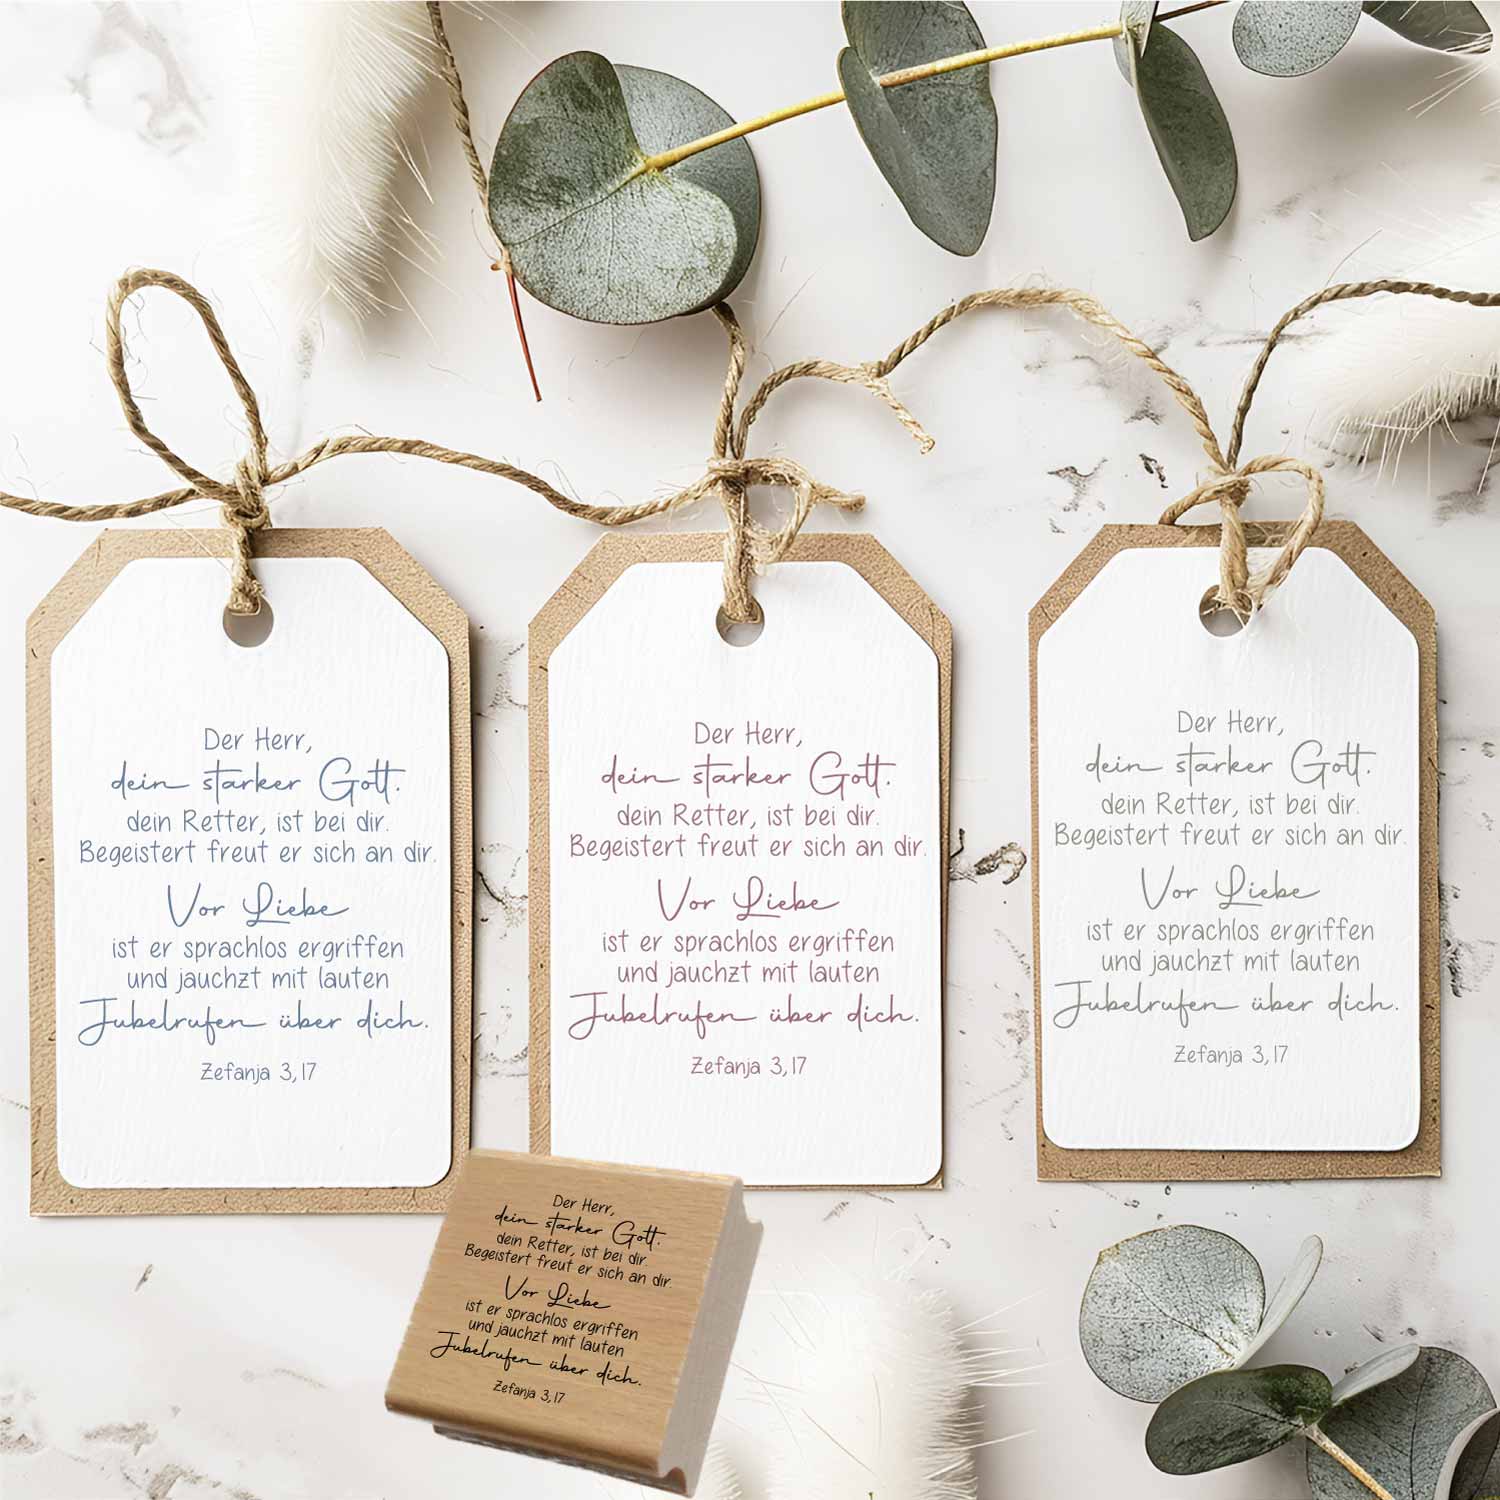 Der Herr,
dein starker Gott.
dein Retter, ist bei dir.
Begeistert freut er sich an dir.
Vor Liebe
ist er sprachlos ergriffen
und jauchzt mit lauten
Jubelrufen über dich.
Zefanja 3,17
Der Herr,
dein starker Gott.
dein Retter, ist bei dir.
Begeistert freut er sich an dir.
Vor Liebe
ist er sprachlos ergriffen
und jauchzt mit lauten
Jubelrufen über dich.
Zefanja 3,17
Der Herr,
dein starker Gott.
dein Retter, ist bei dir.
Begeistert freut er sich an dir.
Vor Liebe
ist er sprachlos ergriffen
und jauchzt mit lauten
Jubelrufen über dich.
Zefanja 3,17
Der Herr,
dein starker Gott.
dein Retter, ist bei dir.
Begeistert freut er sich an dir.
Vor Liebe
ist er sprachlos ergriffen
und jauchzt mit lauten
Jubelrufen über dich.
Zefanja 3,17